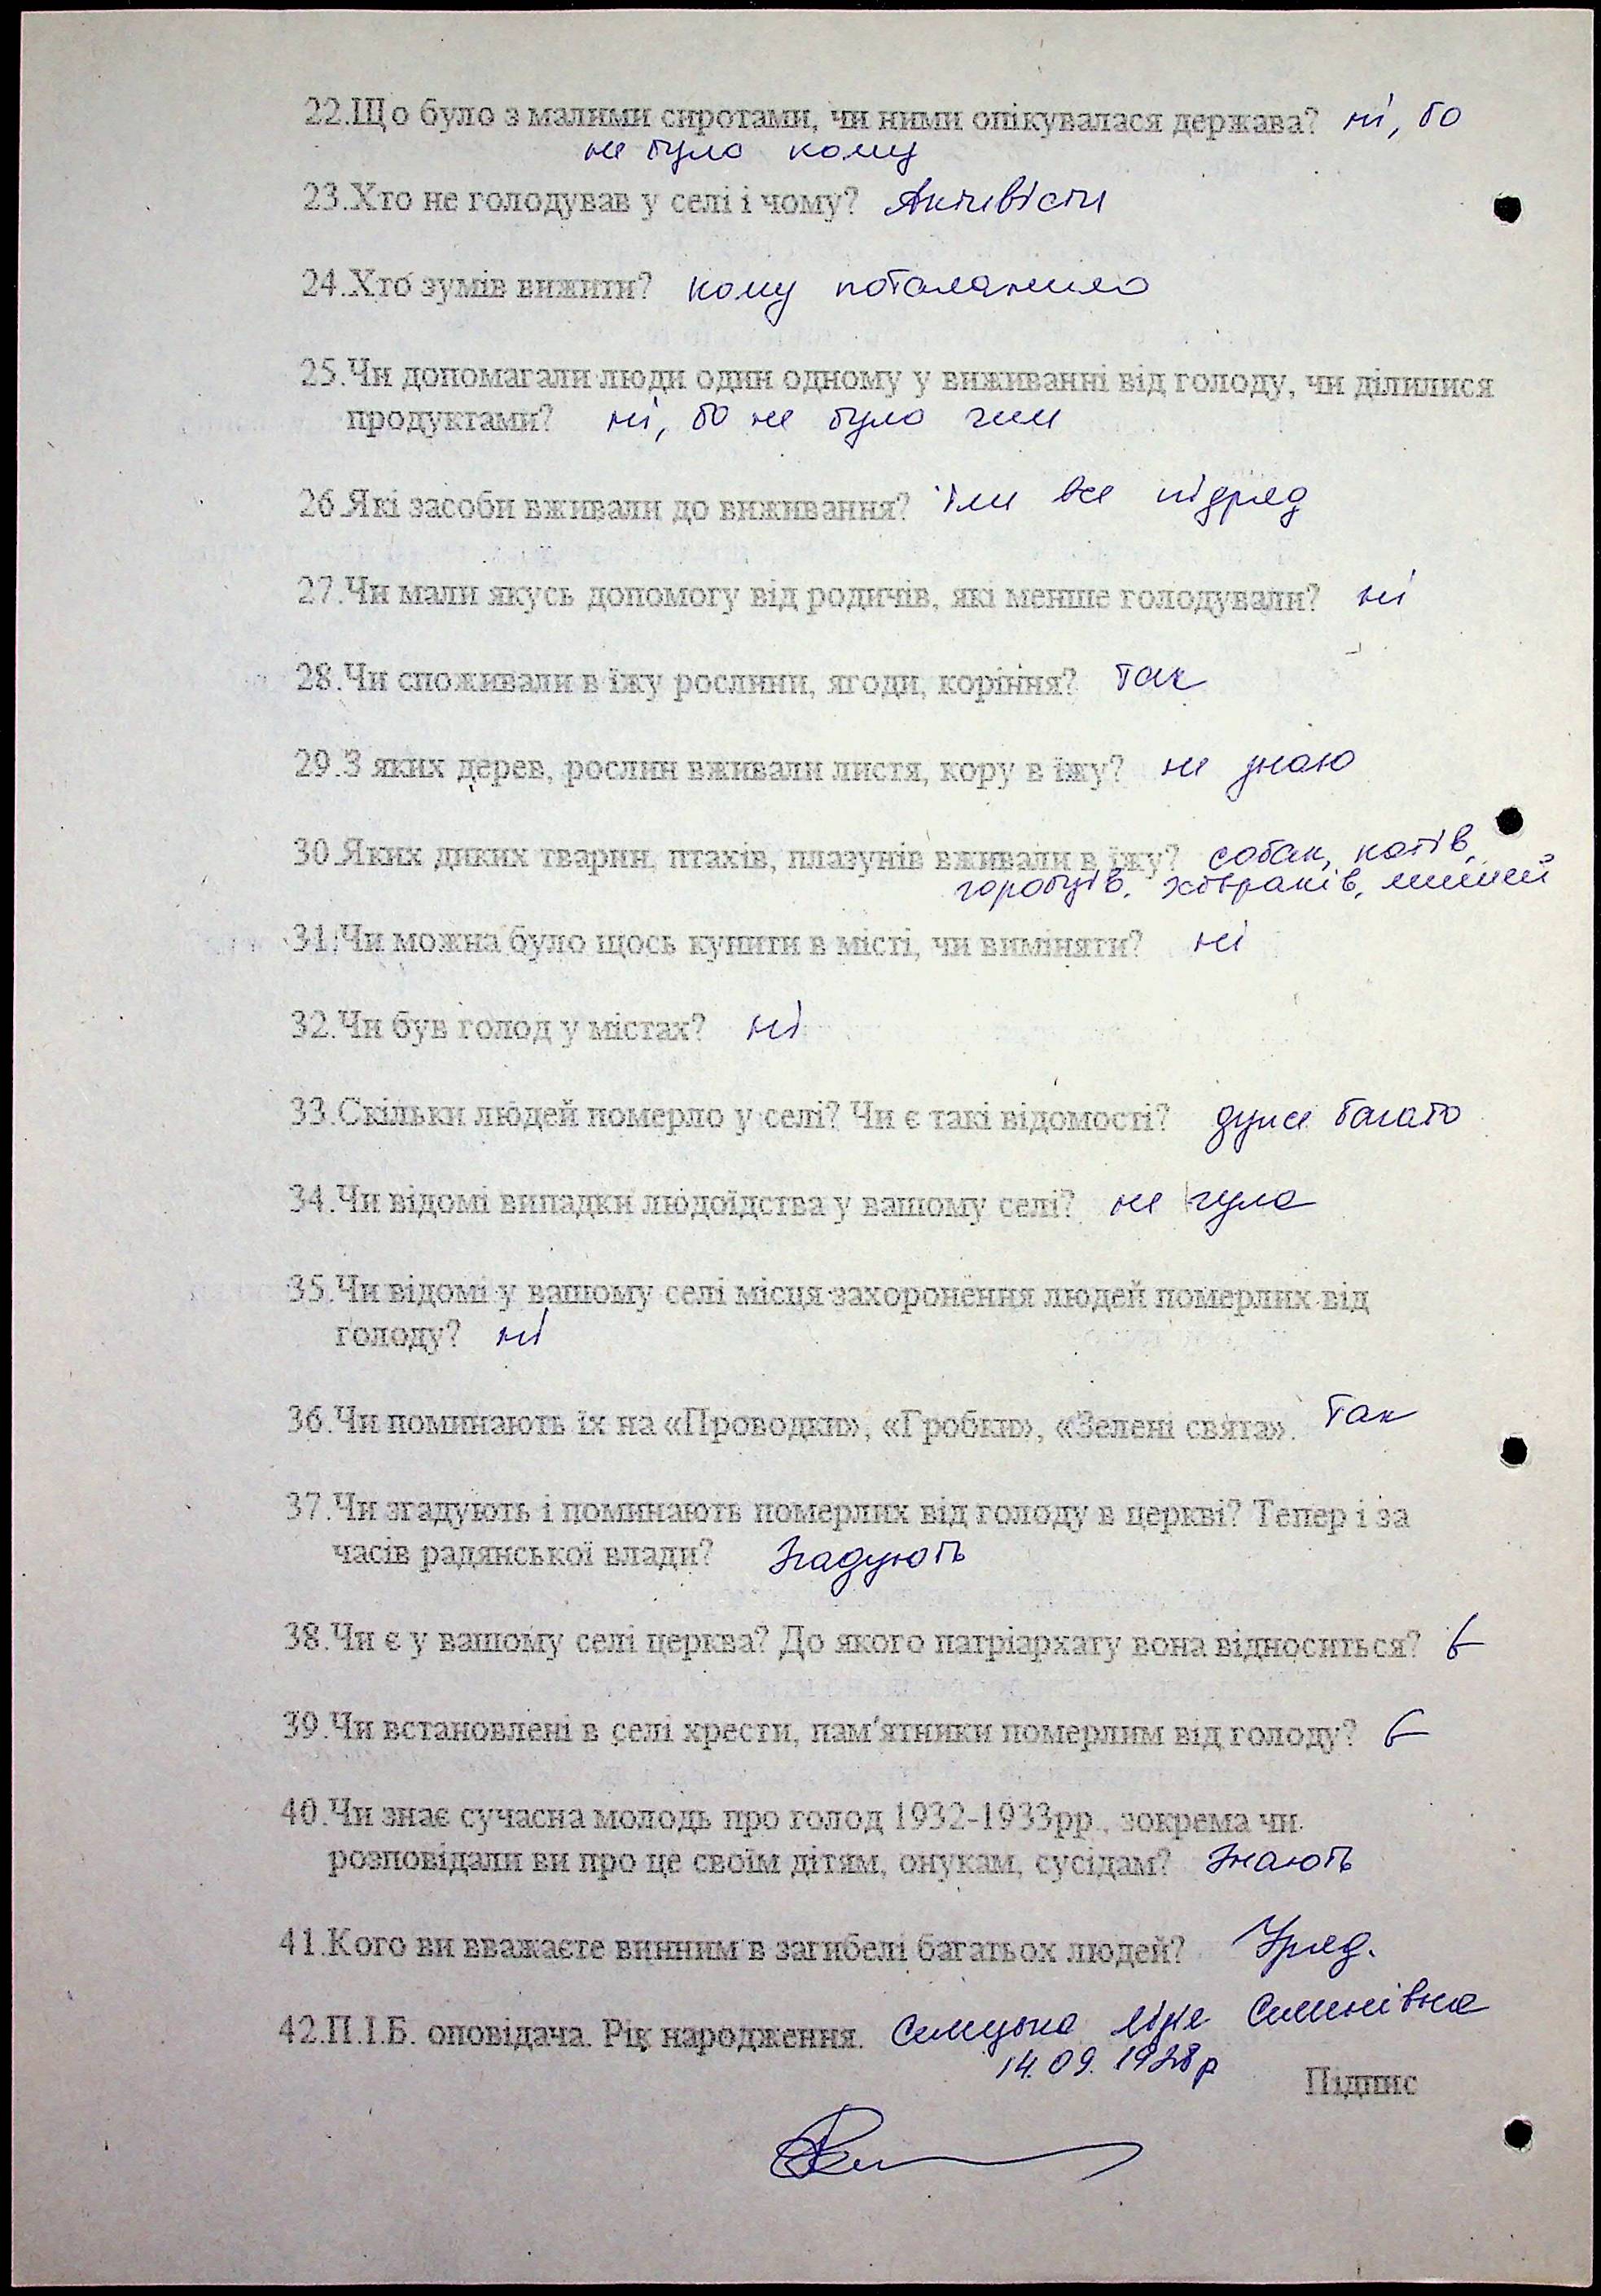 22.Що було з малими сиротами, чи ними опікувалася держава? ні, бо
не було кому
23.Хто не голодував у селі і чому? Активісти
24.Хто зумів вижити? кому поталанило
25.Чи допомагали люди один одному у виживанні від голоду, чи ділилися
продуктами? ні, бо не було чим
26.Які засоби вживали до виживання? їли все підряд
27.Чи мали якусь допомогу від родичів, які менше голодували? ні
28.Чи споживали в їжу рослини, ягоди, коріння? так
29.З яких дерев, рослин вживали листя, кору в їжу? не знаю
30.Яких диких тварин, птахів, плазунів вживали в їжу? собак, котів,
горобців, ховраків, мишей
31.Чи можна було щось купити в місті, чи виміняти? ні
32.Чи був голод у містах? ні
33.Скільки людей померло у селі? Чи є такі відомості? дуже багато
34.Чи відомі випадки людоїдства у вашому селі? не чула
35.Чи відомі у вашому селі місця захоронення людей померлих від
голоду? ні
36.Чи поминають їх на «Проводки», «Гробки», «Зелені свята». Так
37.Чи згадують і поминають померлих від голоду в церкві? Тепер і за
часів радянської влади? Згадують
38.Чи є у вашому селі церква? До якого патріархату вона відноситься? Є
39.Чи встановлені в селі хрести, пам'ятники померлим від голоду? Є
40.Чи знає сучасна молодь про голод 1932-1933рр., зокрема чи
розповідали ви про це своїм дітям, онукам, сусідам? Знають
41.Кого ви вважаєте винним в загибелі багатьох людей? Уряд.
42.П.І.Б. оповідача. Рік народження.
14.09.1928р
Підпис